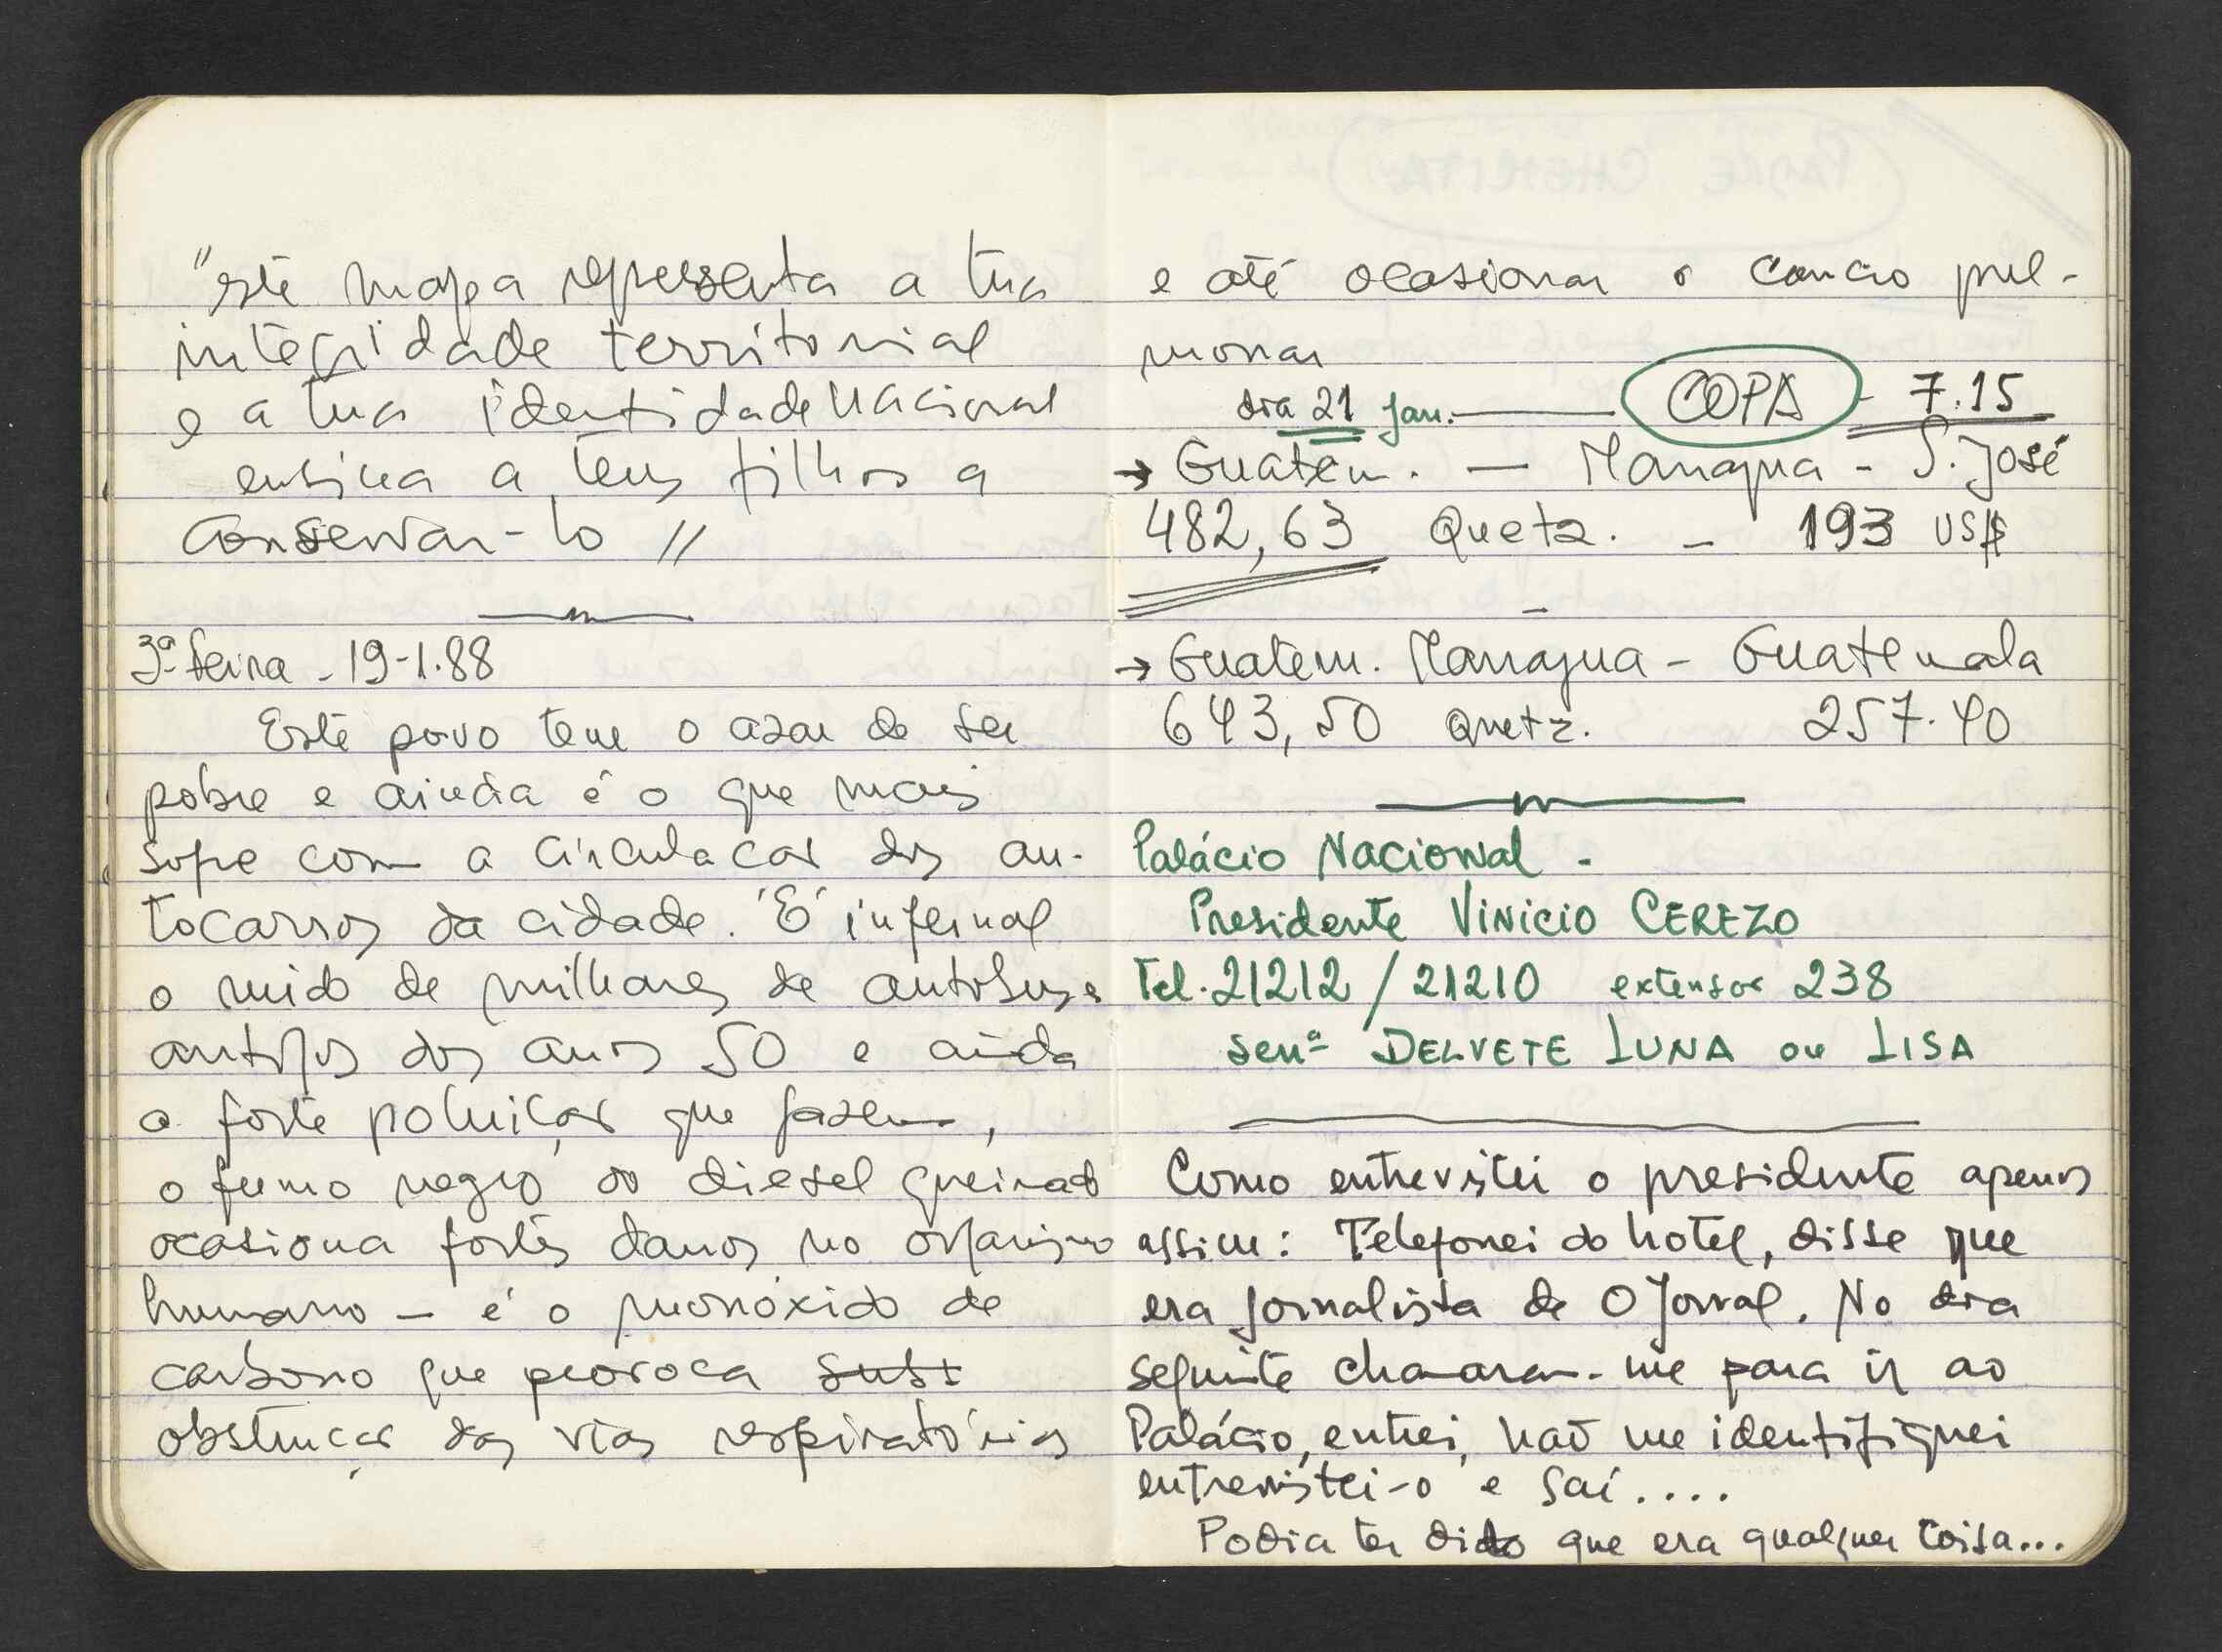 "este mapa representa a tua
integridade territorial
e a tua identidade nacional
ensina a teus filhos a
conservar-lo"
3ª feira - 19-1.88
Este povo tem o azar de ser
pobre e ainda é o que mais
sofre com a circulação dos au-
tocarros da cidade. É infernal
o ruido de milhares de autobuses
antigos dos anos 50 e ainda
a forte poluição que fazem,
o fumo negro do diesel queimado
ocasiona fortes danos no organismo
humano - é o monóxido de
carbono que provoca subst
obstrução das vias respiratórias
e até ocasionar o cancro pul-
monar
dia 21 jan. — COPA - 7.15
→ Guatem. — Managua - S. José
482,63 Quetz. - 193 US$
→ Guatem. Managua - Guatemala
643,50 Quetz. 257.40
Palácio Nacional -
Presidente Vinicio CEREZO
Tel. 21212 / 21210 extensor 238
senª DELVETE LUNA ou LISA
Como entrevistei o presidente apenas
assim: Telefonei do hotel, disse que
era jornalista de O Jornal. No dia
seguinte chamaram-me para ir ao
Palácio, entrei, não me identifiquei
entrevistei-o e saí....
Podia ter dito que era qualquer coisa...